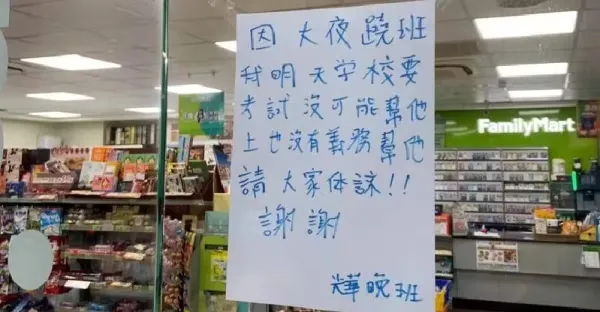 因 大夜蹺班
我明天学校要
考試沒可能幫他
上也沒有義務幫他
請大家体諒!!
謝謝
晚班
FamilyMart